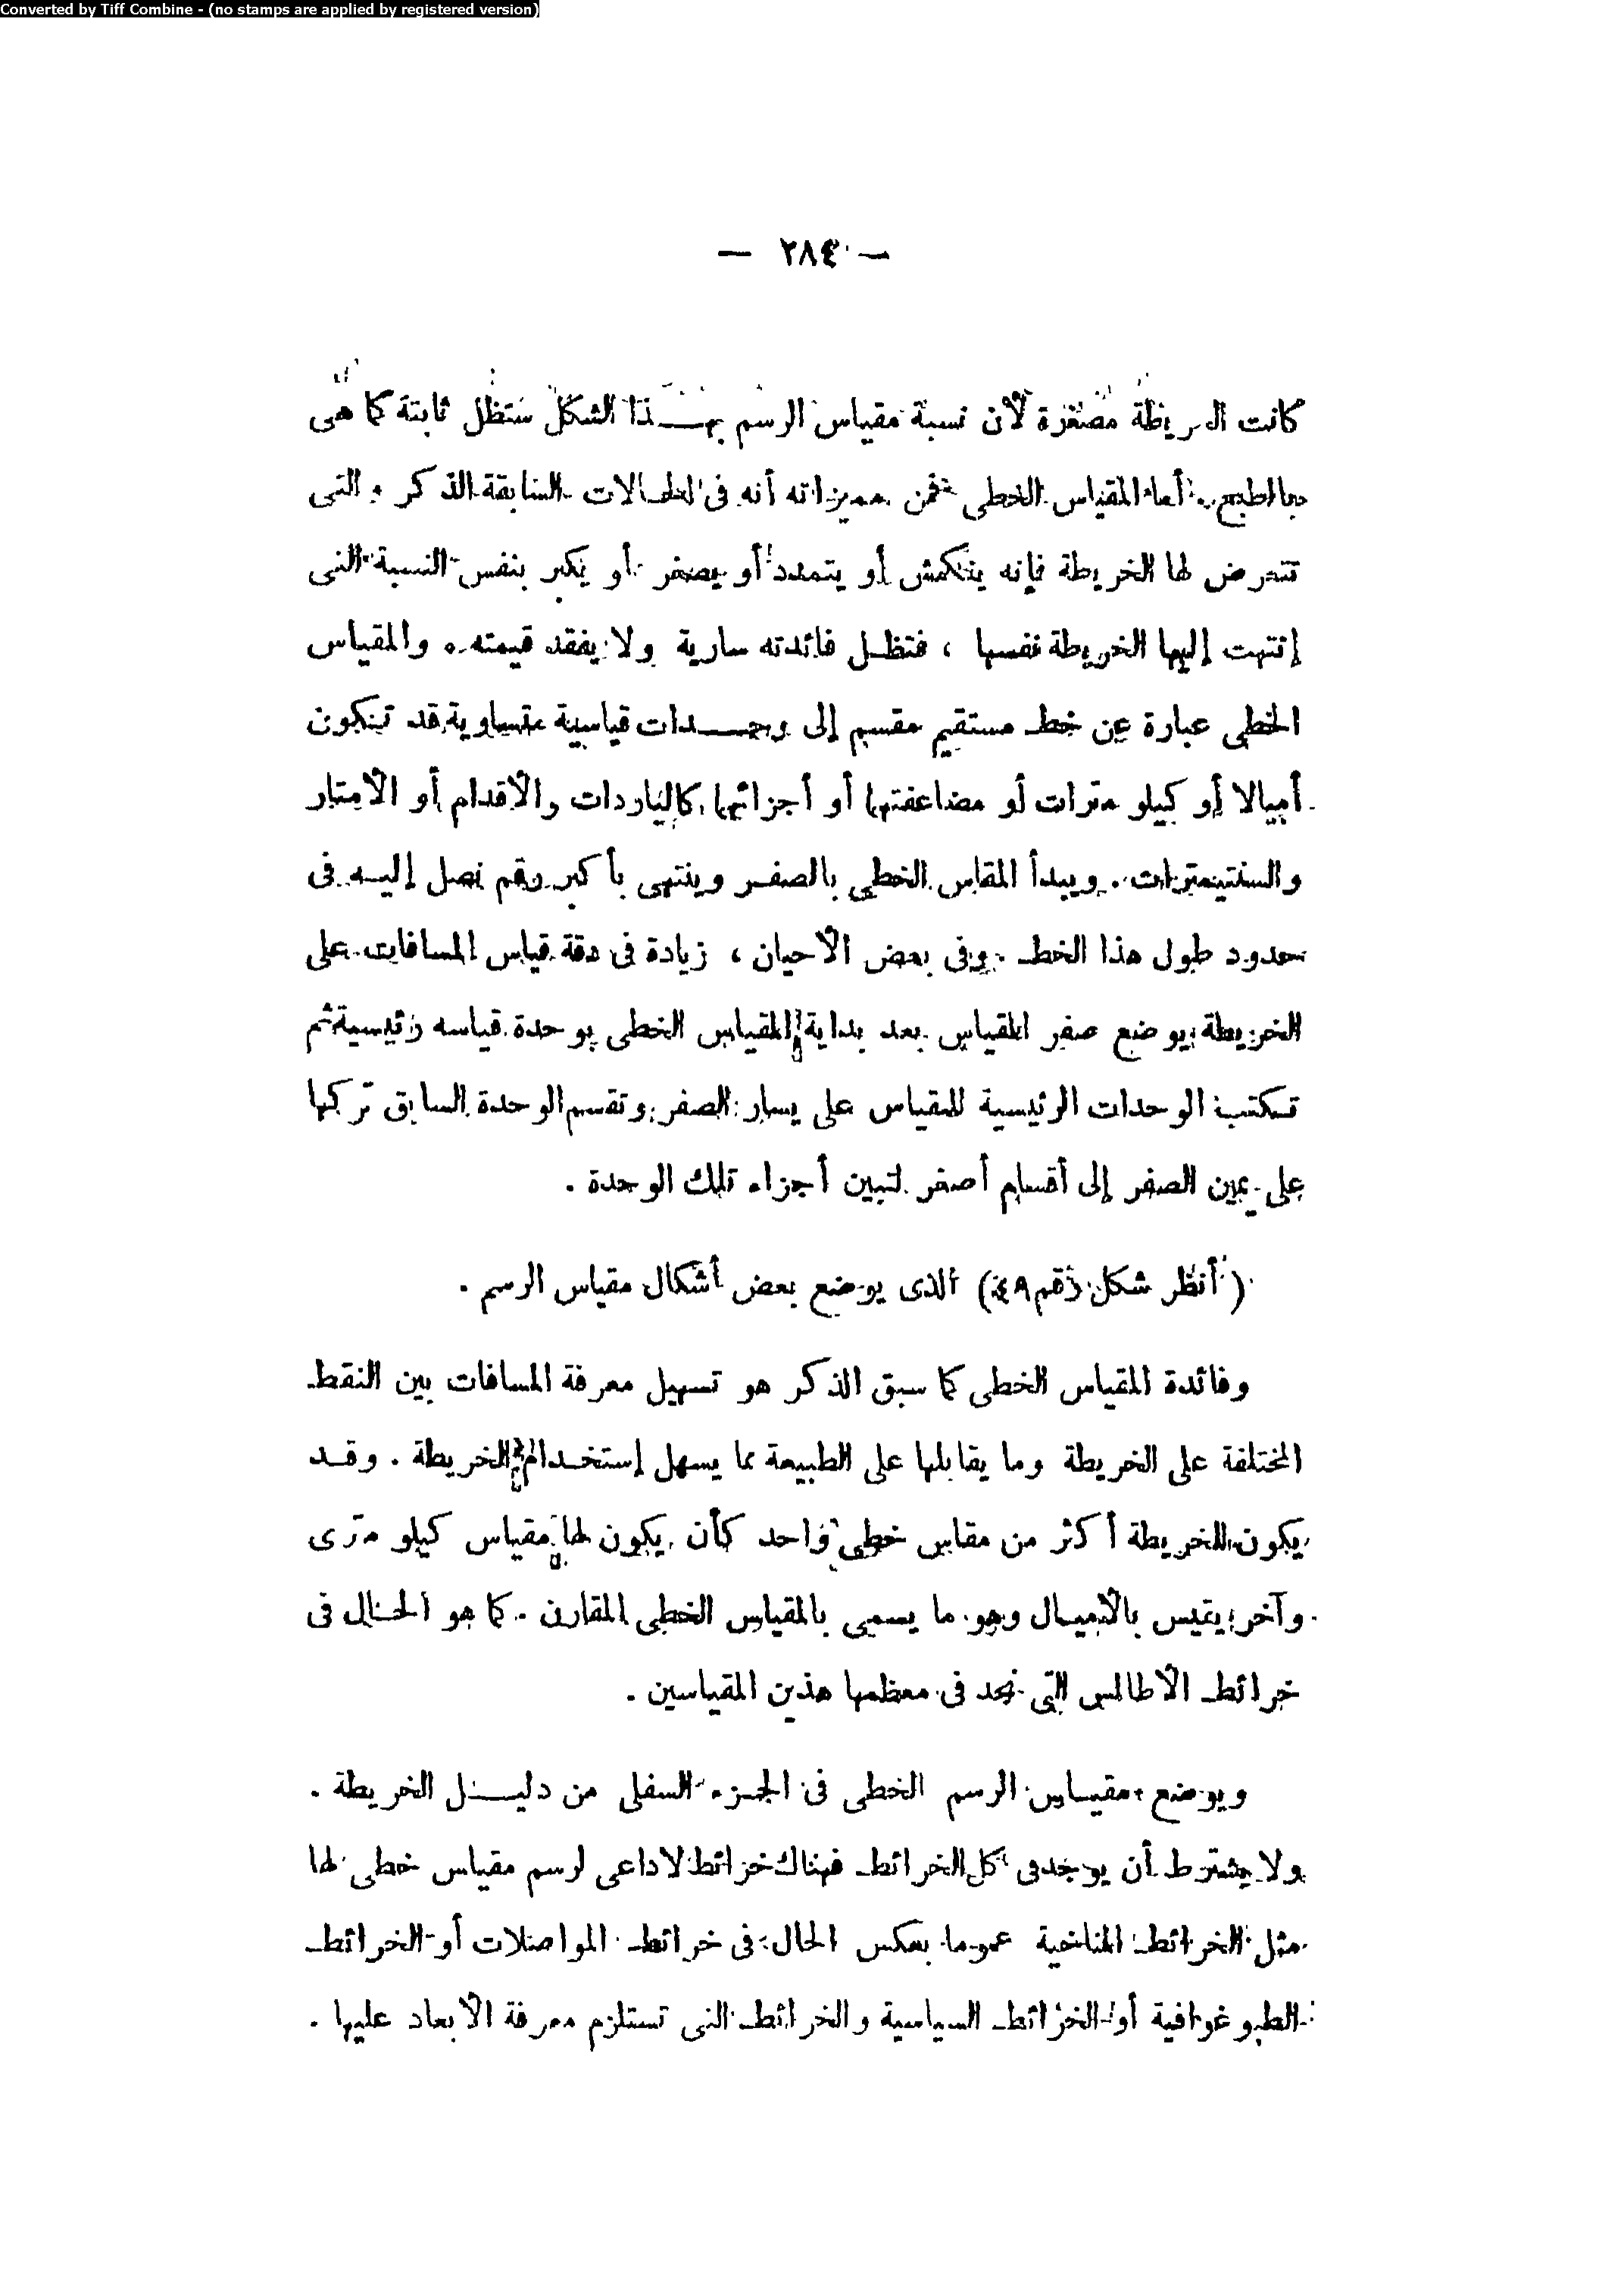 Converted by Tiff Combine - (no stamps are applied by registered version)
— ٢٨٤ —
كانت الخريطة مصغرة لأن نسبة مقياس الرسم بهذا الشكل ستظل ثابتة كما هى
بالطبع . أما المقياس الخطى فمن مميزاته أنه فى الحالات السابقة الذكر والتى
تتعرض لها الخريطة فإنه ينكمش أو يتمدد أو يصغر أو يكبر بنفس النسبة التى
إنتهت إليها الخريطة نفسها ، فتظل فائدته سارية ولا يفقد قيمته . والمقياس
الخطى عبارة عن خط مستقيم مقسم إلى وحدات قياسية متساوية قد تتكون
أميالا أو كيلو مترات أو مضاعفتها أو أجزائها كالياردات والأقدام أو الأمتار
والسنتيمترات . ويبدأ المقاس الخطى بالصفر وينتهى بأكبر رقم نصل إليه فى
حدود طول هذا الخط . وفى بعض الأحيان ، زيادة فى دقة قياس المسافات على
الخريطة يوضع صفر المقياس بعد بداية المقياس الخطى بوحدة قياسه رئيسية ثم
تكتب الوحدات الرئيسية للمقياس على يسار الصفر وتقسم الوحدة السابق تركها
على يمين الصفر إلى أقسام أصغر لتبين أجزاء تلك الوحدة .
( أنظر شكل رقم ٤٩ ) الذى يوضع بعض أشكال مقياس الرسم .
وفائدة المقياس الخطى كما سبق الذكر هو تسهيل معرفة المسافات بين النقط
المختلفة على الخريطة وما يقابلها على الطبيعة مما يسهل إستخدام الخريطة . وقد
يكون للخريطة أكثر من مقاس خطى واحد كأن يكون لها مقياس كيلو مترى
وآخر يقيس بالأميال وهو ما يسمى بالمقياس الخطى المقارن . كما هو الحال فى
خرائط الأطالس التى نجد فى معظمها هذين المقياسين .
ويوضع مقياس الرسم الخطى فى الجزء السفلى من دليل الخريطة .
ولا يشترط أن يوجد فى كل الخرائط فهناك خرائط لاداعى لرسم مقياس خطى لها
مثل الخرائط المناخية عموما بعكس الحال فى خرائط المواصلات أو الخرائط
الطبوغرافية أو الخرائط السياسية والخرائط التى تستلزم معرفة الأبعاد عليها .